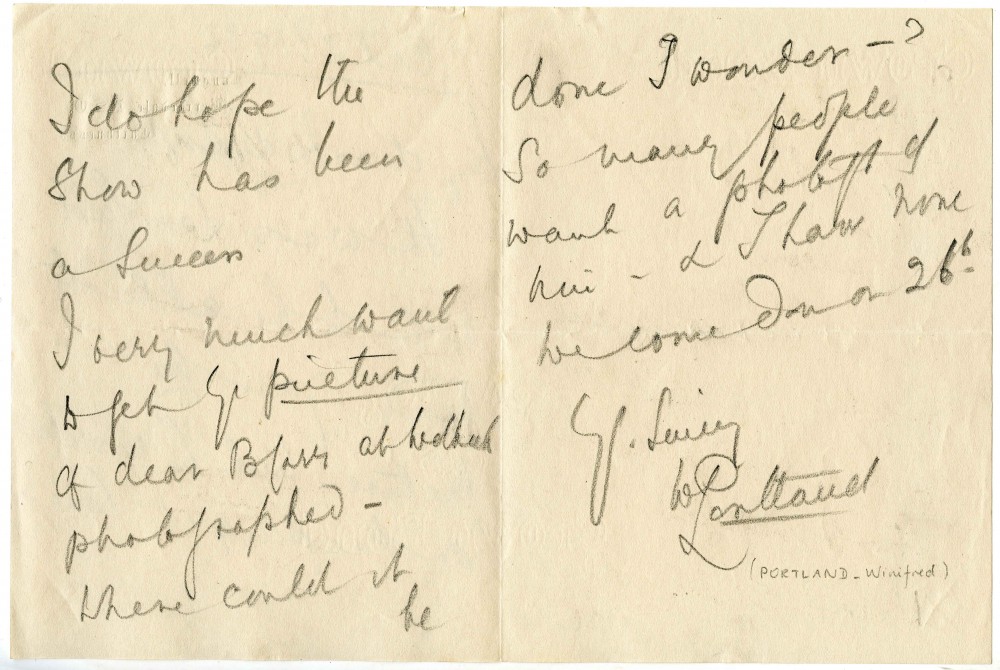 I do hope the
Show has been
a Success
I very much want
to get yr picture
of dear at Welbeck
photographed –
Where could it
be
done I wonder – ?
So many people
want a photogph of
him – & I have none
We come on 26th
Yr. 
W Portland
(PORTLAND - Winifred)